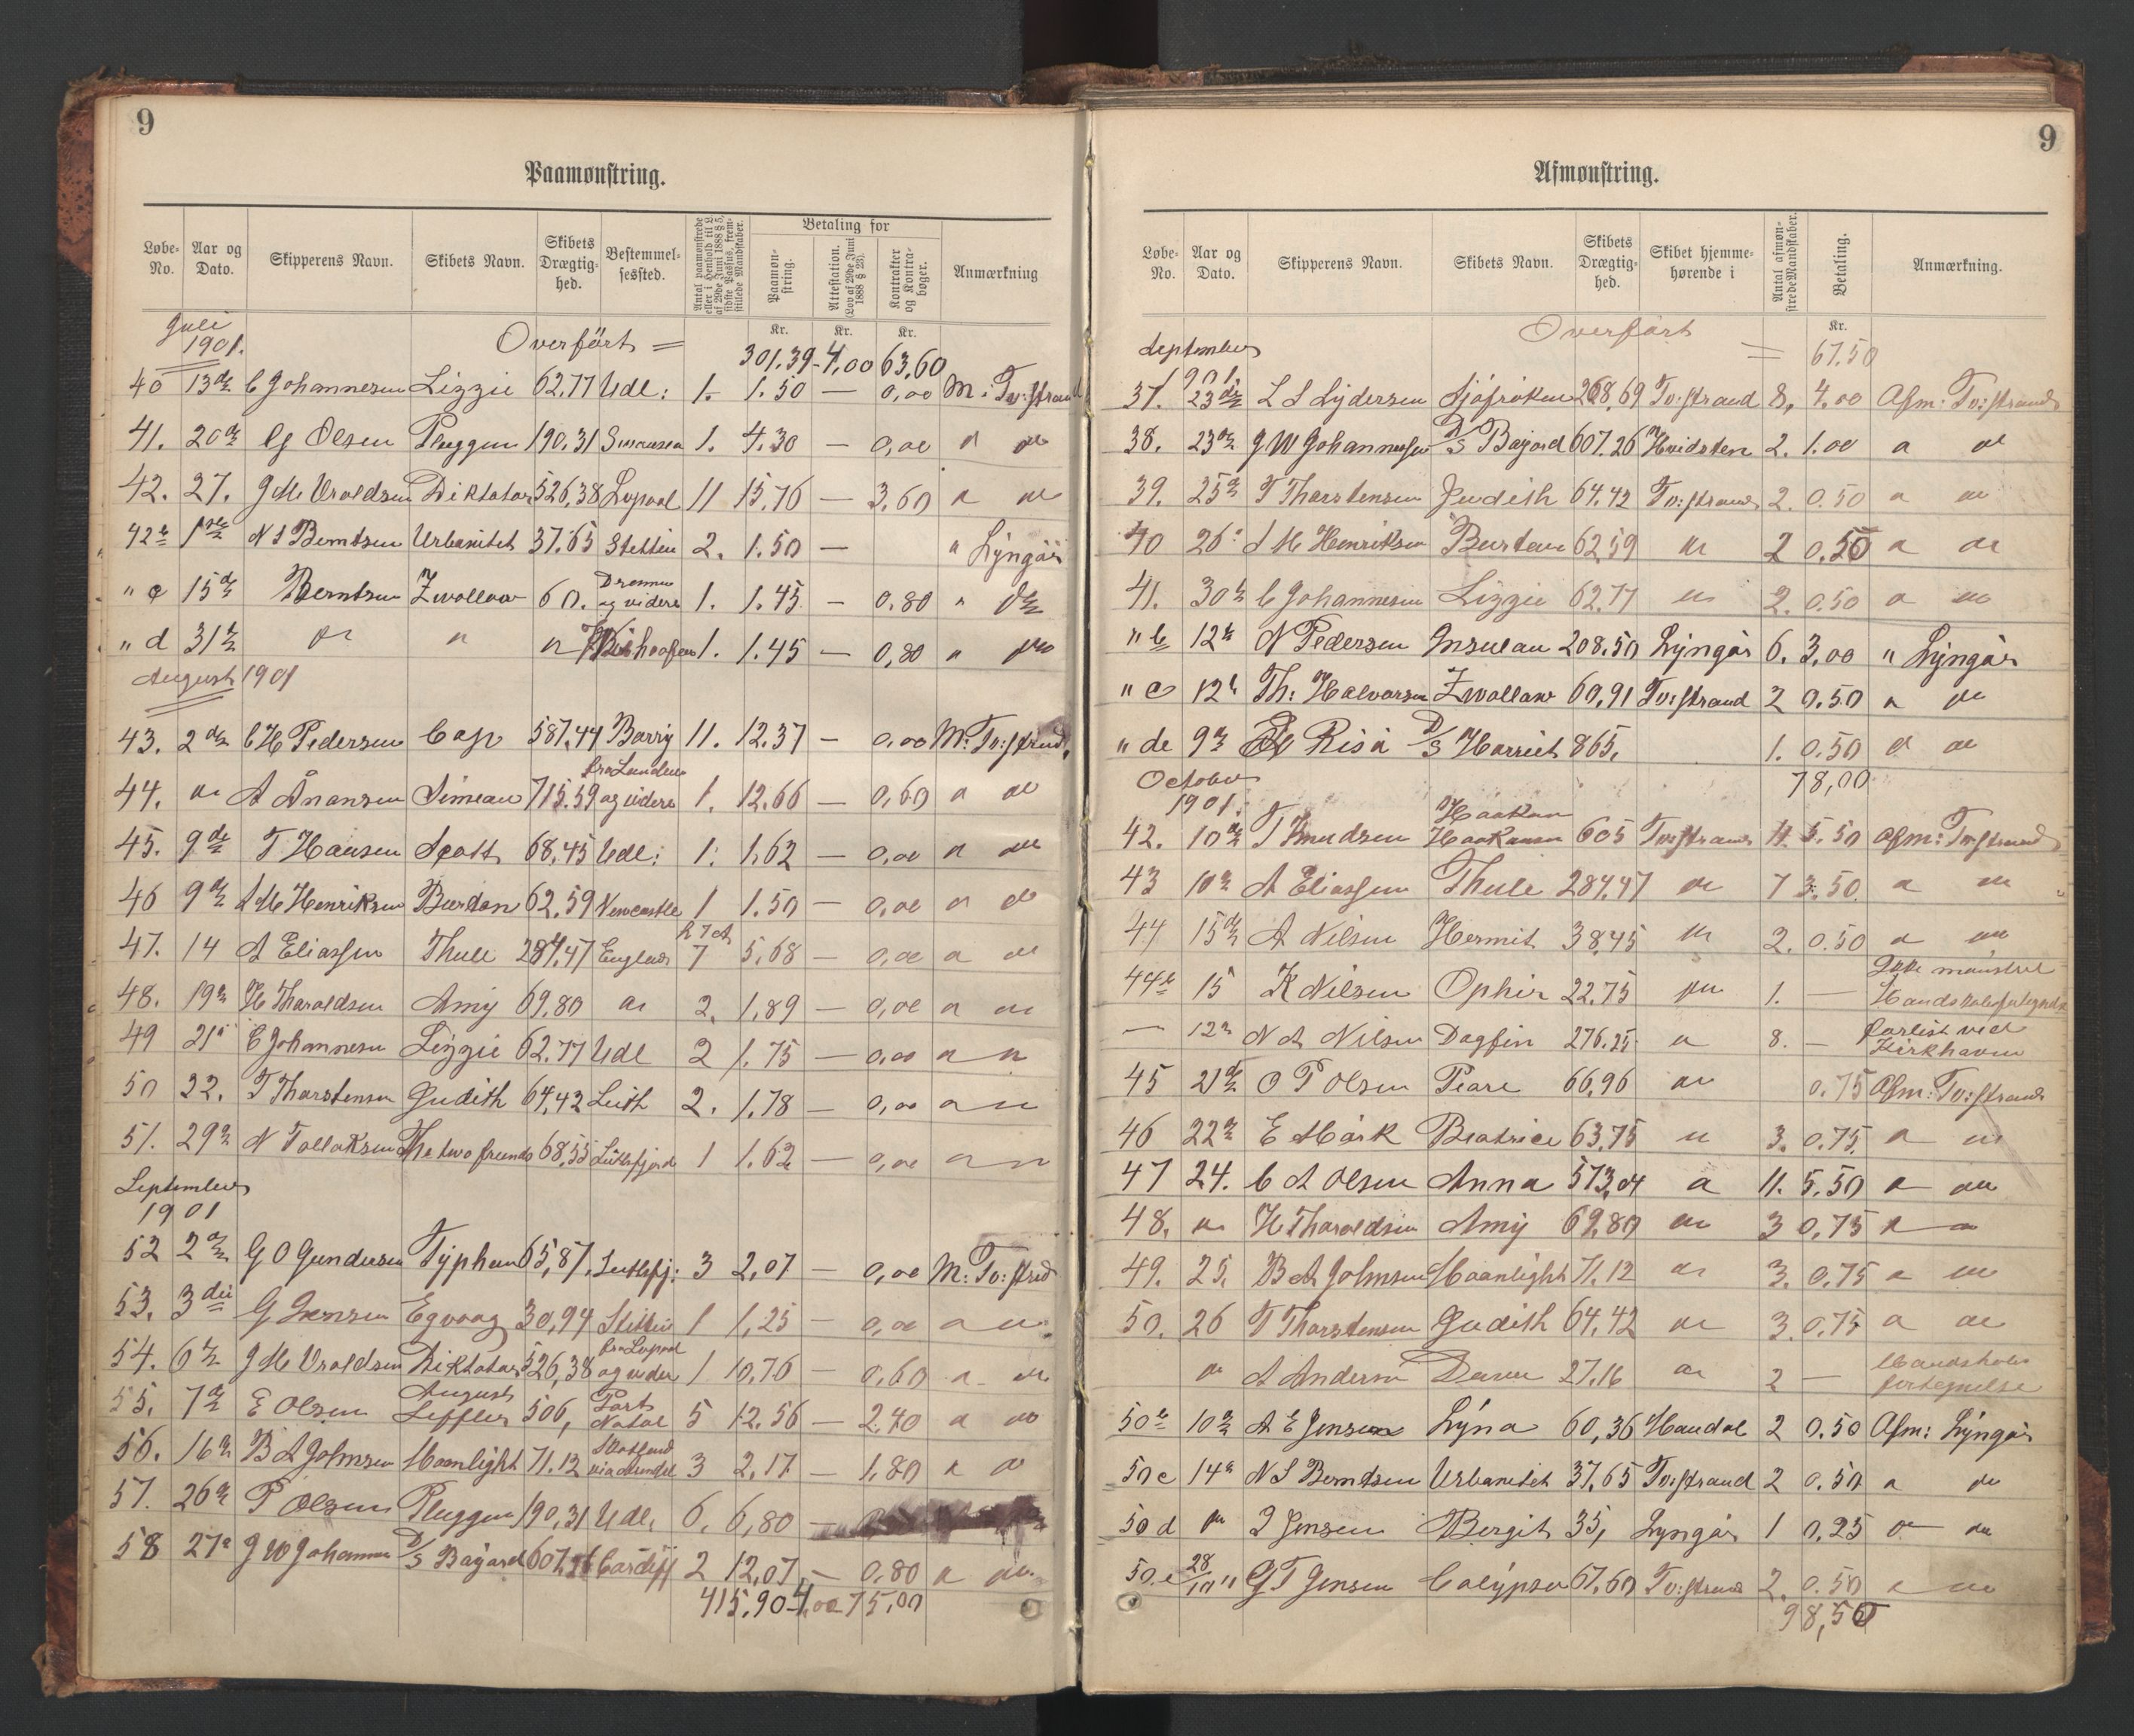 9
Paamønstring.
Løbe-No. Aar og Dato. Skipperens Navn. Skibets Navn. Skibets Drægtighed. Bestemmelsessted. Antal paamønstrede eller i Henhold til L. af 29de Juni 1888 § 5, sidste Passus, fremstillede Mandskaber. Betaling for Paamønstring. Attestation. (Lov af 29de Juni 1888 § 23). Kontrakter og Kontrabøger. Anmærkning
Kr. Kr. Kr.
Juli 1901. Overført = 301,39 - 4,00 63,60
40 13de C Johannesen Lizzie 62.77 Udl: 1. 1.50 — 0,00 M: Tv:strand
41. 20de G Olsen Pluggen 190.31 Swansea 1. 4.30 — 0,00 " "
42. 27. J M Uroldsen Diktator 526,38 Lvpool 11 15,76 — 3,60 " "
42b 1ste N S Berntsen Urbanitet 37.65 Stettin 2. 1.50 — " Lyngør
" c 15de Berntsen Zwollaw 60. Drammen og videre 1. 1.45 — 0,80 " de
" d 31te " " " 1. 1.45 — 0,80 " "
August 1901
43. 2de C H Pedersen Cap 587,44 Barry 11. 12.37 — 0,00 M: Tv:strnd.
44. " A Ånonsen Simeon 715.59 fra London og videre 1. 12.66 — 0,60 " "
45. 9de T Hansen Scott 68,45 Udl: 1. 1,62 — 0,00 " "
46 9de S M Henriksen Burton 62,59 Newcastle 1 1.50 — 0,00 " "
47. 14 A Eliassen Thule 284,47 England 7 5,68 — 0,00 " "
48. 19de H Tharaldsen Amy 69,80 " 2. 1,89 — 0,00 " "
49 21 C Johannesen Lizzie 62.77 Udl 2 1.75 — 0,00 " "
50 22. T Thorstensen Judith 64,42 Leith 2. 1.78 — 0,00 " "
51. 29de N Tallaksen The two friends 68,55 1 1.62 — 0,00 " "
September 1901
52 2de G O Gundersen Typhon 65,87. 3 2,07 — 0,00 M: Tv:strd
53. 3die G Jensen Egvaag 30,94 Stettin 1 1,25 — 0,00 " "
54. 6te J M Uroldsen Diktator 526,38 fra Lvpool og videre 1 10,76 — 0,60 " "
55. 7de E Olsen August Leffler 506, Port Natal 5 12.56 — 2.40 " "
56. 16de B A Johnsen Moonlight 71.12 Skotland via Arendal 3 2.17 — 1,80 " "
57. 26de P Olsen Pluggen 190,31 Udl. 6. 6,80 —
58 27de J W Johannesen D/S Bayard 607,26 Cardiff 2 12,07 — 0.80 " "
415,90 4,00 75,00
9
Afmønstring.
Løbe-No. Aar og Dato. Skipperens Navn. Skibets Navn. Skibets Drægtighed. Skibet hjemmehørende i Antal afmønstrede Mandskaber. Betaling. Anmærkning.
Kr.
September 1901. Overført = 67.50
37. 23de L S Lydersen Sjøfrøken 268,69 Tv:strand 8, 4.00 Afm: Tv:strand
38. 23de J W Johannessen D/S Bayard 607.26 Hvidsten 2. 1.00 " "
39. 25de T Thorstensen Judith 64.42 Tv:strand 2. 0.50 " "
40 26 S M Henriksen Burton 62,59 " 2 0.50 " "
41. 30te C Johannesen Lizzie 62.77 " 2. 0.50 " "
" b 12te N Pedersen Insulan 208.50 Lyngør 6. 3,00 " Lyngør
" c 12te Th: Halvorsen Zwollaw 60,91 Tv:strand 2 0.50 " "
" de 9de Risø D/S Harriet 865. 1. 0.50 " "
October 1901. 78,00
42. 10de T Knudsen Haakon Haakonsen 605 Tv:strand 11. 5.50 Afm: Tv:strand
43 10de A Eliassen Thule 284.47 " 7 3.50. " "
44 15de A Nilsen Hermit 38,45 " 2. 0.50 " "
44b 15 K Nilsen Ophir 22.75 " 1. — Ikke mønstret
— 12te N A Nilsen Dagfin 276.25 " 8. — forlist ved Kirkhavn
45 21de O P Olsen Peare 66,96 " 0.75 Afm: Tv:strand
46 22de E Mørk Beatrice 63.75 " 3. 0.75. " "
47 24. C A Olsen Anna 573,04 " 11. 5.50 " "
48. " H Tharaldsen Amy 69,80 " 3 0,75 " "
49. 25. B A Johnsen Moonlight 71.12 " 3. 0.75 " "
50. 26 T Thorstensen Judith 64.42 " 3. 0.75 " "
" A Andersen 27,16 " 2 — Mandskabs fortegnelse
50b 10de A E Jensen Lyna 60,36 Mandal 2 0.50 Afm: Lyngør
50c 14de N S Berntsen Urbanitet 37,65 Tv:strand 2 0.50 " "
50 d " J Jensen Bergit 35, Lyngør 1 0.25 " "
50.e 28/10 G T Jensen Calypso 67.60 Tv:strand 2. 0.50 " "
98,50